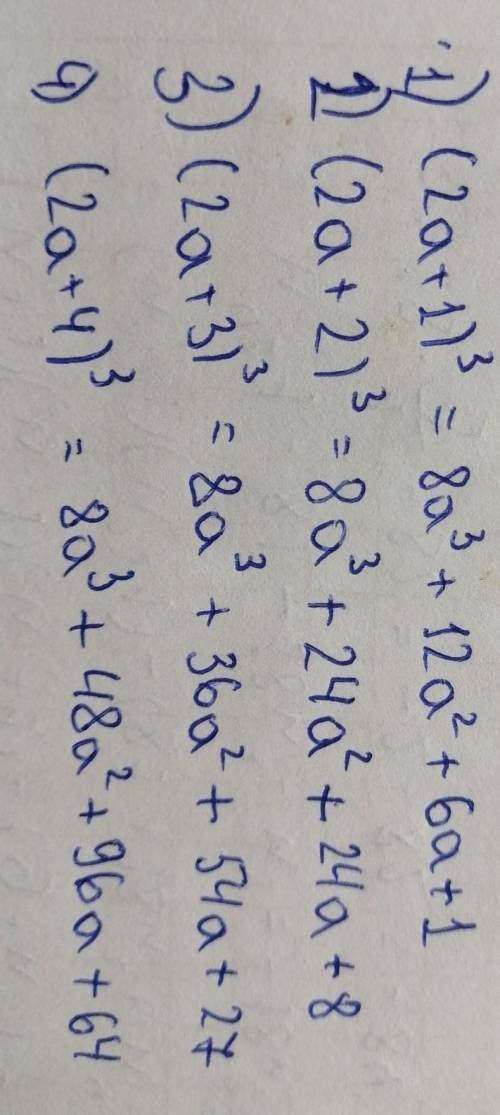 1) (2a+1)³ = 8a³ + 12a² + 6a + 1
2) (2a + 2)³ = 8a³ + 24a² + 24a + 8
3) (2a + 3)³ = 8a³ + 36a² + 54a + 27
4) (2a + 4)³ = 8a³ + 48a² + 96a + 64